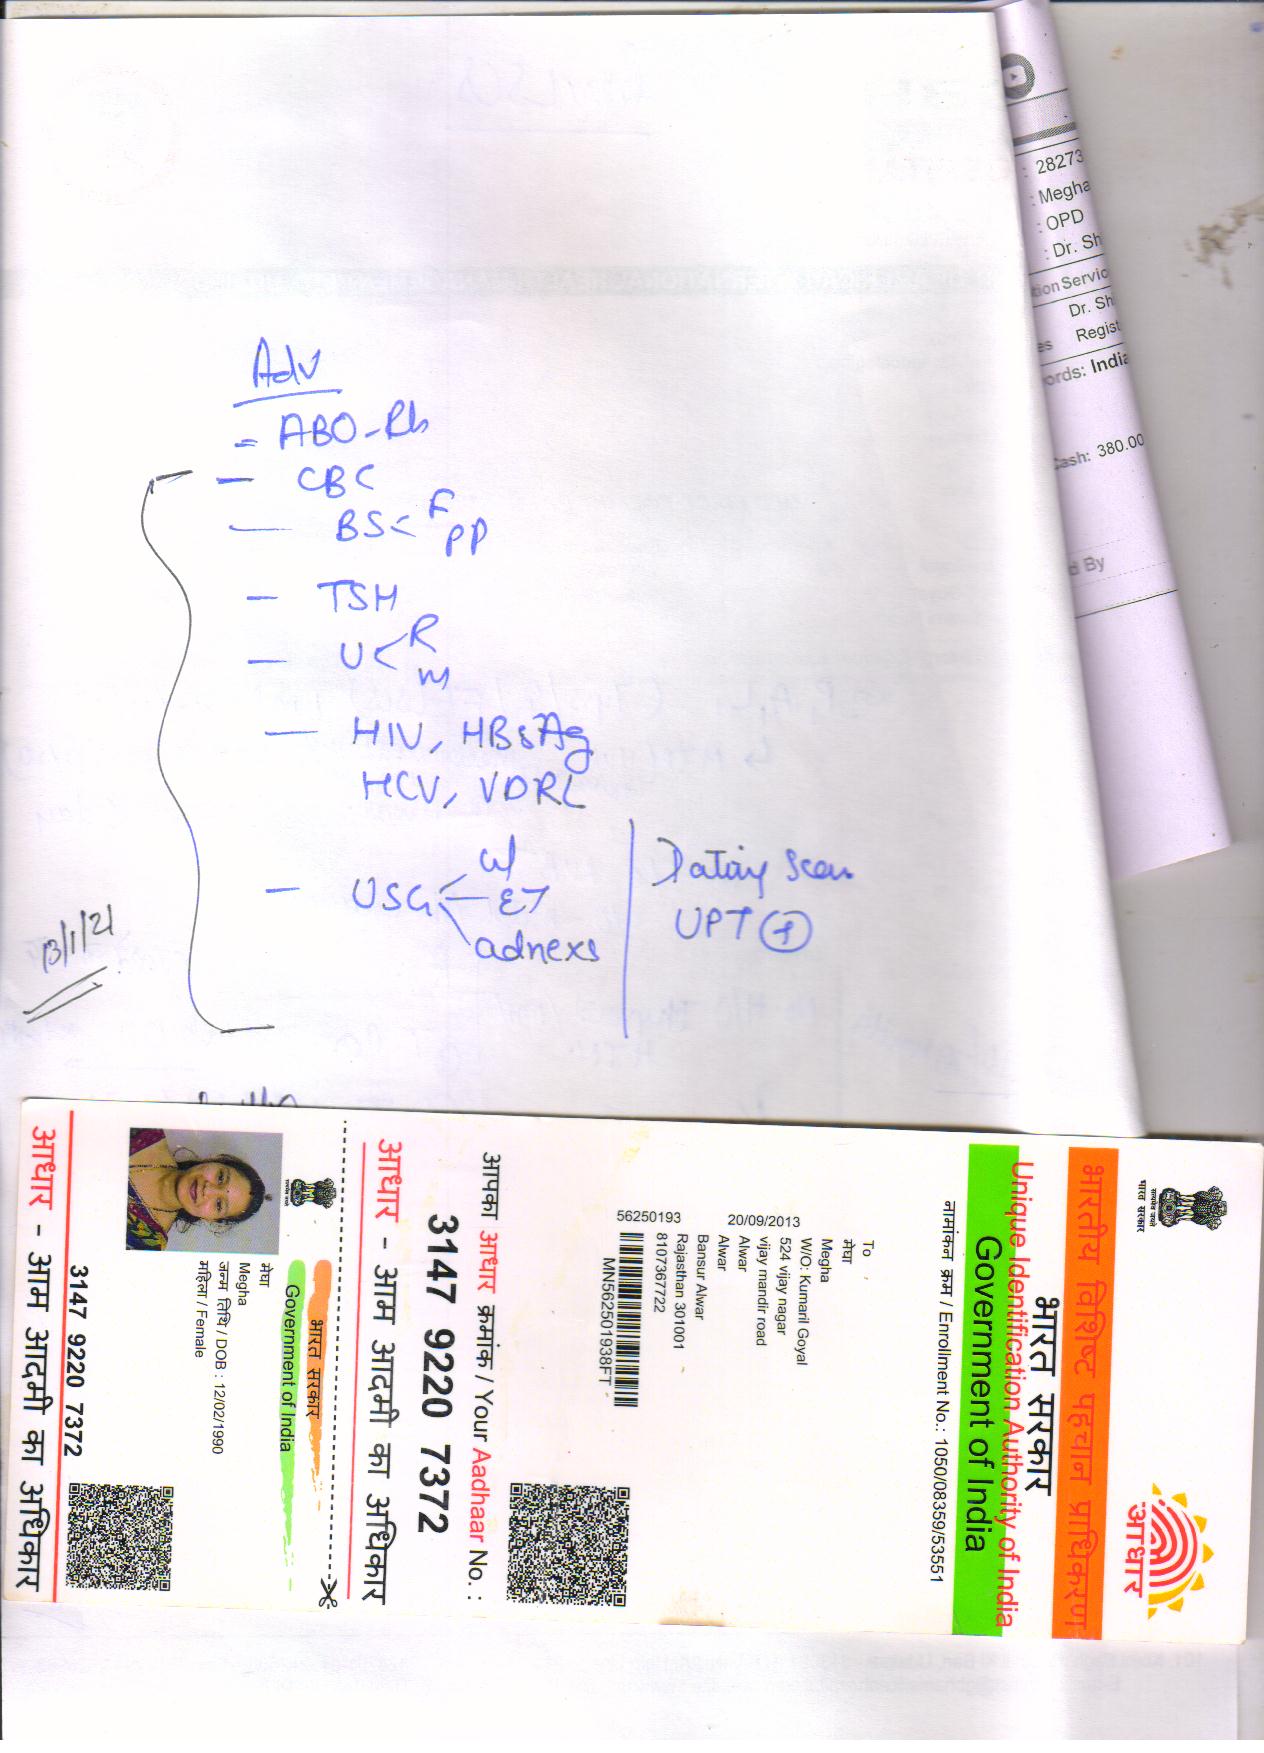 : 28273
: Megha
: OPD
: Dr. Sh
tion Servic
Dr. Sh
es Regist
ords: India
Cash: 380.00
d By
Adv
= ABO-Rh
- CBC
- BS < F
PP
- TSH
- U < R
M
- HIV, HBsAg
HCV, VDRL
- USG < w/
ET
adnexs
Dating Scan
UPT (+)
13/1/21
भारत सरकार
भारतीय विशिष्ट पहचान प्राधिकरण
भारत सरकार
Unique Identification Authority of India
Government of India
आधार
नामांकन क्रम / Enrollment No.: 1050/08359/53551
To
मेघा
Megha
W/O: Kumaril Goyal
524 vijay nagar
vijay mandir road
Alwar
Alwar
Bansur Alwar
Rajasthan 301001
8107367722
20/09/2013
56250193
MN562501938FT
आपका आधार क्रमांक / Your Aadhaar No. :
3147 9220 7372
आधार - आम आदमी का अधिकार
भारत सरकार
Government of India
मेघा
Megha
जन्म तिथि / DOB : 12/02/1990
महिला / Female
3147 9220 7372
आधार - आम आदमी का अधिकार